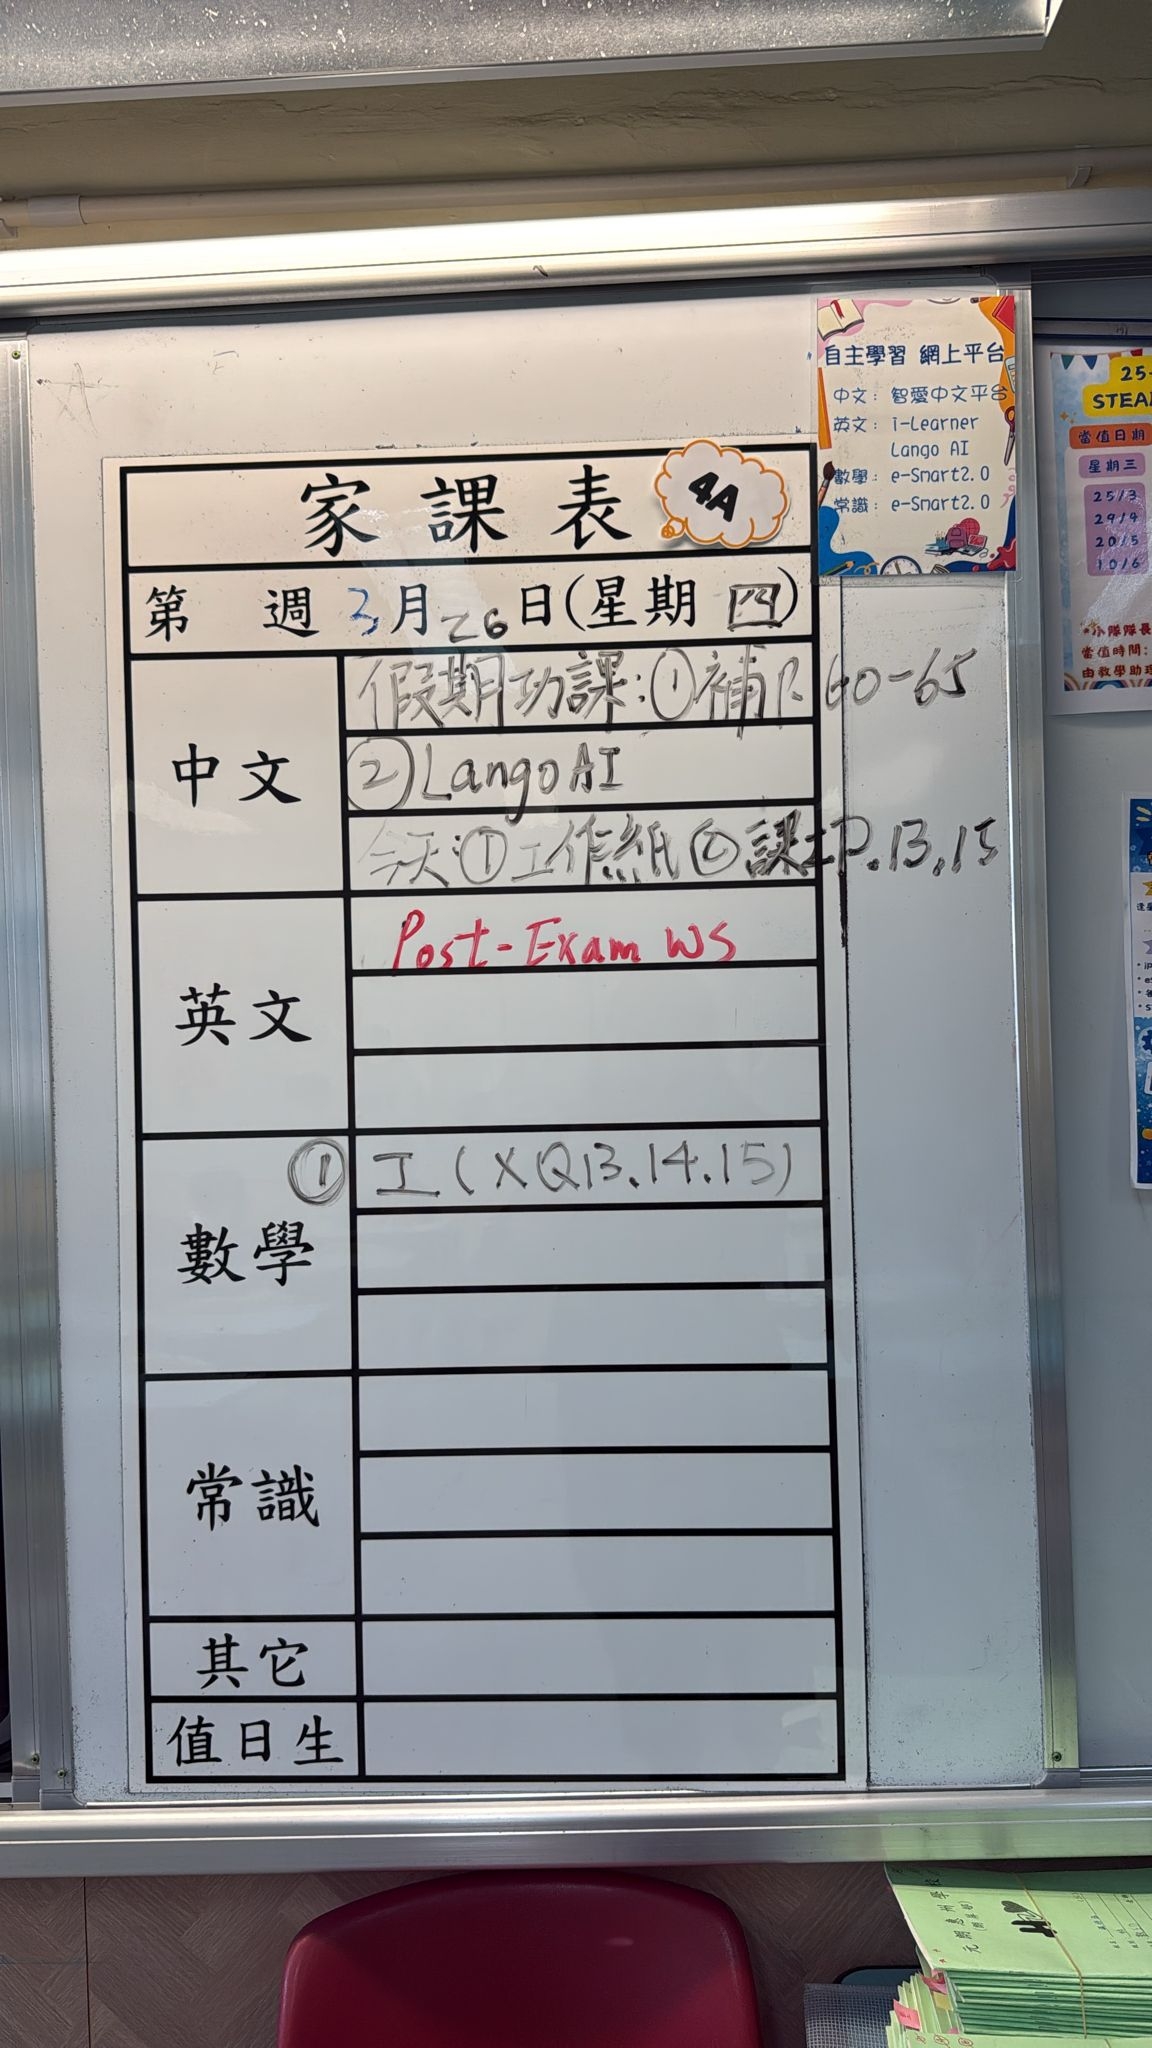 自主學習 網上平台
中文：智愛中文平台
英文：i-Learner
Lango AI
數學：e-Smart2.0
常識：e-Smart2.0
25-
STEA
當值日期
星期三
25/3
29/4
20/5
10/6
*小隊隊長
當值時間：
由教學助理
家課表
4A
第 週 3月26日(星期四)
中文
假期功課:①補P.60-65
②Lango AI
今天:①工作紙②課本P.13,15
英文
Post-Exam WS
數學
① 工(XQ13.14.15)
常識
其它
值日生